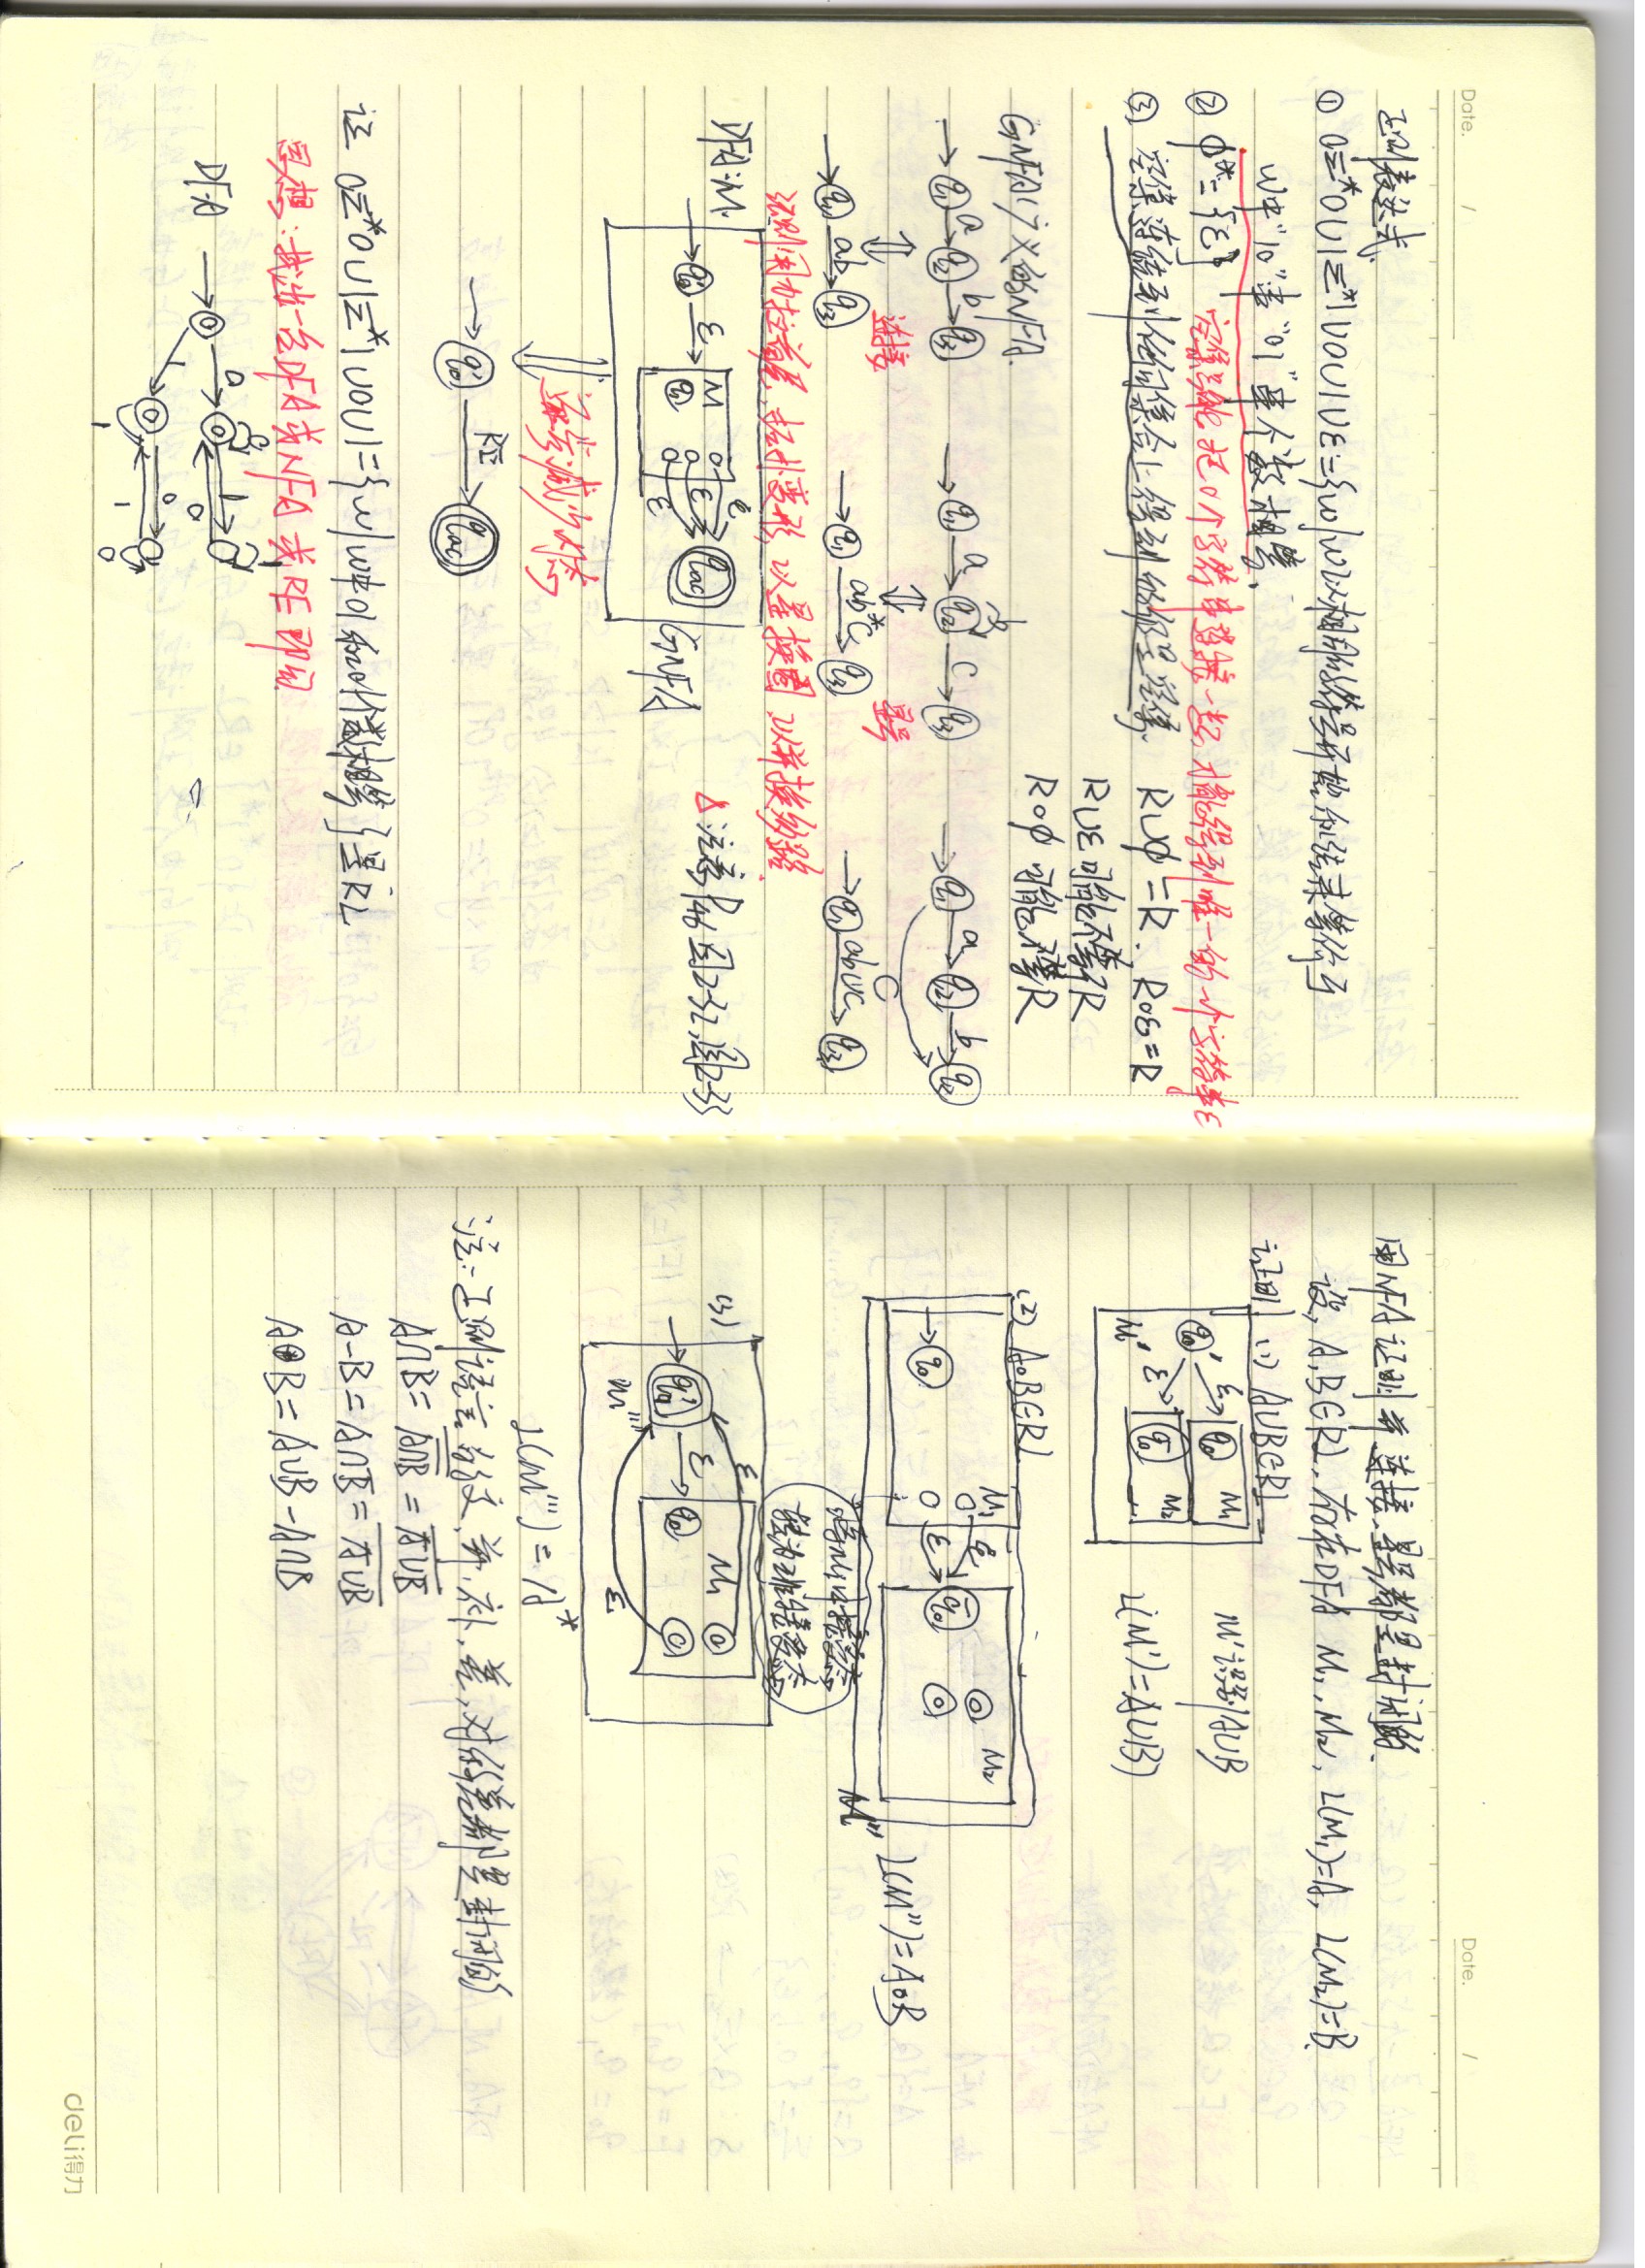 Date. /
正则表达式
① 0Σ*0∪1Σ*1∪0∪1∪ε={w|w以相同的符号开始和结束等价于
w中"10"串"01"串个数相等.
② ϕ*={ε} 空集只能把0个字符串连接一起,才能得到唯一的一个字符串ε
③ 空集连结到任何集合上得到的仍是空集. R∪ϕ=R. R∘ε=R
R∪ε可能不等于R
R∘ϕ可能不等R
GNFA广义的NFA.
q1 a q2 b q3
q1 a q2 b c q3
q1 a q2 b q2 c
连接
星号
q1 ab q3
q1 ab*c q3
q1 ab∪c q3
法则用力拉首尾,拓扑变形,以星换圈,以并换多路.
DFA:M.
q0' ε M q1 ε ε ε qac
GNFA
△注意P46 图2-32,图2-33
逐步减少状态
q0' RE qac
证 0Σ*0∪1Σ*1∪0∪1={w|w中01和01个数相等}是RL
思想:找出一台DFA或NFA或RE即可
DFA 0 0 1 0 1
1 0 1 1 0
Date. /
用NFA证明并 连接.星号都是封闭的.
设, A,B∈RL, 存在DFA M1, M2, L(M1)=A, L(M2)=B.
证明 (1) A∪B∈RL
q0' ε q0 M1
ε q0 M2
M'
M'识别A∪B
L(M')=A∪B)
(2) A∘B∈RL
q0 M1 ε ε q0 M2
M''
L(M'')=A∘B
将M1中接受态
转为非接受态
(3)
q0' ε q0 M1 ε ε
M'''
L(M''')=A*
注:正则语言的交,并,补,差,对称差都是封闭的
A∩B=A̅∩̅B̅=A̅∪̅B̅
A-B=A∩B̅=A̅∪̅B̅
A⊕B=A∪B-A∩B
deli得力